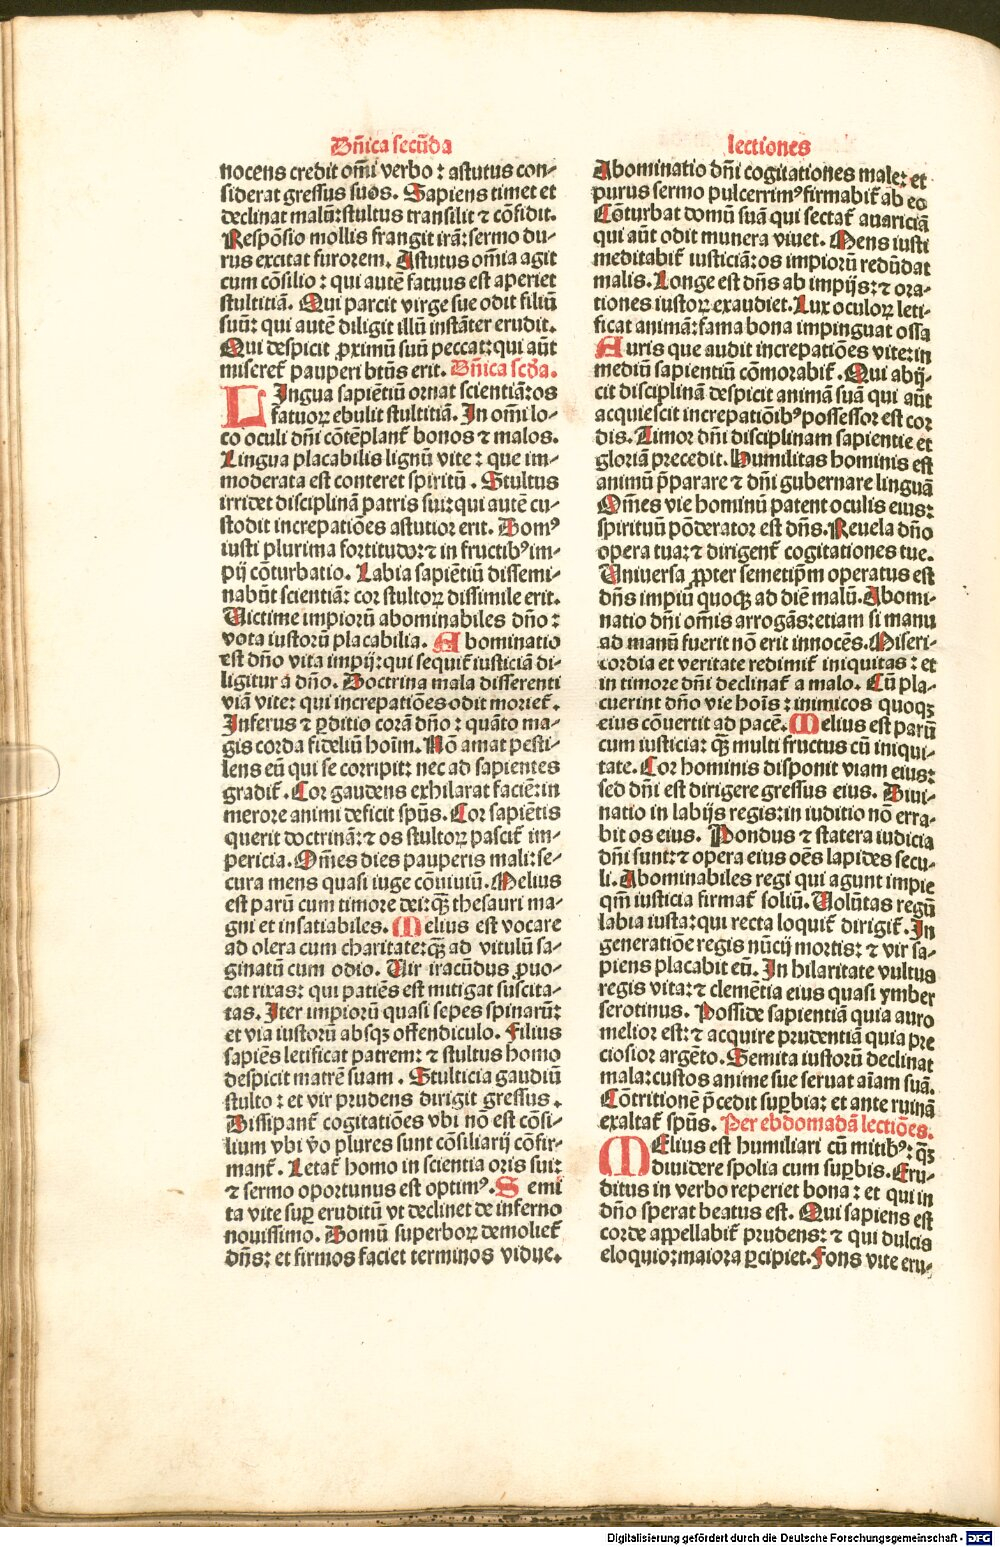 Dñica secũda
nocens credit om̃i verbo : astutus con-
siderat gressus suos. Sapiens timet et
declinat malũ: stultus transilit ⁊ cõfidit.
Respõsio mollis frangit irã: sermo du-
rus excitat furorem. Astutus om̃ia agit
cum cõsilio : qui autẽ fatuus est aperiet
stultitiã. Qui parcit virge sue odit filiũ
suũ: qui autẽ diligit illũ instãter erudit.
Qui despicit ꝓximũ suũ peccat: qui aũt
miseret᷑ pauperi bt̃us erit. Dñica scd̃a.
LIngua sapiẽtiũ ornat scientiã: os
fatuoꝝ ebulit stultitiã. In om̃i lo-
co oculi dñi cõtẽplant᷑ bonos ⁊ malos.
Lingua placabilis lignũ vite : que im-
moderata est conteret spiritũ . Stultus
irridet disciplinã patris sui: qui autẽ cu-
stodit increpatiões astutior erit. Domꝰ
iusti plurima fortitudo: ⁊ in fructibꝰ im-
pij cõturbatio. Labia sapiẽtiũ dissemi-
nabũt scientiã: cor stultoꝝ dissimile erit.
Victime impiorũ abominabiles dño :
vota iustorũ placabilia. Abominatio
est dño vita impij: qui sequit᷑ iusticiã di-
ligitur a dño. Doctrina mala differenti
viã vite: qui increpatiões odit moriet᷑.
Infernus ⁊ ꝑditio corã dño : quãto ma-
gis corda fideliũ hoĩm. Nõ amat pesti-
lens eũ qui se corripit: nec ad sapientes
gradit᷑. Cor gaudens exhilarat faciẽ: in
merore animi deficit spũs. Cor sapiẽtis
querit doctrinã: ⁊ os stultoꝝ pascit᷑ im-
pericia. Om̃es dies pauperis mali: se-
cura mens quasi iuge cõuiuiũ. Melius
est parũ cum timore dei: q̃ꝫ thesauri ma-
gni et insatiabiles. Melius est vocare
ad olera cum charitate: q̃ꝫ ad vitulũ sa-
ginatũ cum odio. Vir iracũdus ꝓuo-
cat rixas: qui patiẽs est mitigat suscita-
tas. Iter impiorũ quasi sepes spinarũ:
et via iustorũ absqꝫ offendiculo. Filius
sapiẽs letificat patrem: ⁊ stultus homo
despicit matrẽ suam . Stulticia gaudiũ
stulto : et vir prudens dirigit gressus .
Dissipant᷑ cogitatiões vbi nõ est cõsi-
lium vbi v̊o plures sunt cõsiliarij cõfir-
mant᷑. Letat᷑ homo in scientia oris sui:
⁊ sermo oportunus est optimꝰ. Semi
ta vite suꝑ eruditũ vt declinet de inferno
nouissimo. Domũ superboꝝ demoliet᷑
dñs: et firmos faciet terminos vidue.
lectiones
Abominatio dñi cogitationes male: et
purus sermo pulcerrimꝰ firmabit᷑ ab eo
Cõturbat domũ suã qui sectat᷑ auariciã
qui aũt odit munera viuet. Mens iusti
meditabit᷑ iusticiã: os impiorũ redũdat
malis. Longe est dñs ab impijs: ⁊ ora-
tiones iustoꝝ exaudiet. Lux oculoꝝ leti-
ficat animã: fama bona impinguat ossa
Auris que audit increpatiões vite: in
mediũ sapientiũ cõmorabit᷑. Qui abij-
cit disciplinã despicit animã suã qui aũt
acquiescit increpatiõibꝰ possessor est cor
dis. Timor dñi disciplinam sapientie et
gloriã precedit. Humilitas hominis est
animũ p̃parare ⁊ dñi gubernare linguã
Om̃es vie hominũ patent oculis eius:
spirituũ põderator est dñs. Reuela dño
opera tua: ⁊ dirigent᷑ cogitationes tue.
Uniuersa ꝓpter semetip̃m operatus est
dñs impiũ quoqꝫ ad diẽ malũ. Abomi-
natio dñi om̃is arrogãs: etiam si manu
ad manũ fuerit nõ erit innocẽs. Miseri-
cordia et veritate redimit᷑ iniquitas : et
in timore dñi declinat᷑ a malo. Cũ pla-
cuerint dño vie hoĩs : inimicos quoqꝫ
eius cõuertit ad pacẽ. Melius est parũ
cum iusticia: q̃ꝫ multi fructus cũ iniqui-
tate. Cor hominis disponit viam eius:
sed dñi est dirigere gressus eius. Diui-
natio in labijs regis: in iuditio nõ erra-
bit os eius. Pondus ⁊ statera iudicia
dñi sunt: ⁊ opera eius oẽs lapides secu-
li. Abominabiles regi qui agunt impie
qm̃ iusticia firmat᷑ soliũ. Volũtas regũ
labia iusta: qui recta loquit᷑ dirigit᷑. In
generatiõe regis nũcij mortis: ⁊ vir sa-
piens placabit eũ. In hilaritate vultus
regis vita: ⁊ clemẽtia eius quasi ymber
serotinus. Posside sapientiã quia auro
melior est: ⁊ acquire prudentiã quia pre
ciosior argẽto. Semita iustorũ declinat
mala: custos anime sue seruat aĩam suã.
Cõtritionẽ p̃cedit suꝑbia: et ante ruinã
exaltat᷑ spũs. Per ebdomadã lectiões.
MElius est humiliari cũ mitibꝰ: q̃ꝫ
diuidere spolia cum suꝑbis. Eru-
ditus in verbo reperiet bona : et qui in
dño sperat beatus est. Qui sapiens est
corde appellabit᷑ prudens: ⁊ qui dulcis
eloquio: maiora ꝑcipiet. Fons vite eru-
Digitalisierung gefördert durch die Deutsche Forschungsgemeinschaft - DFG